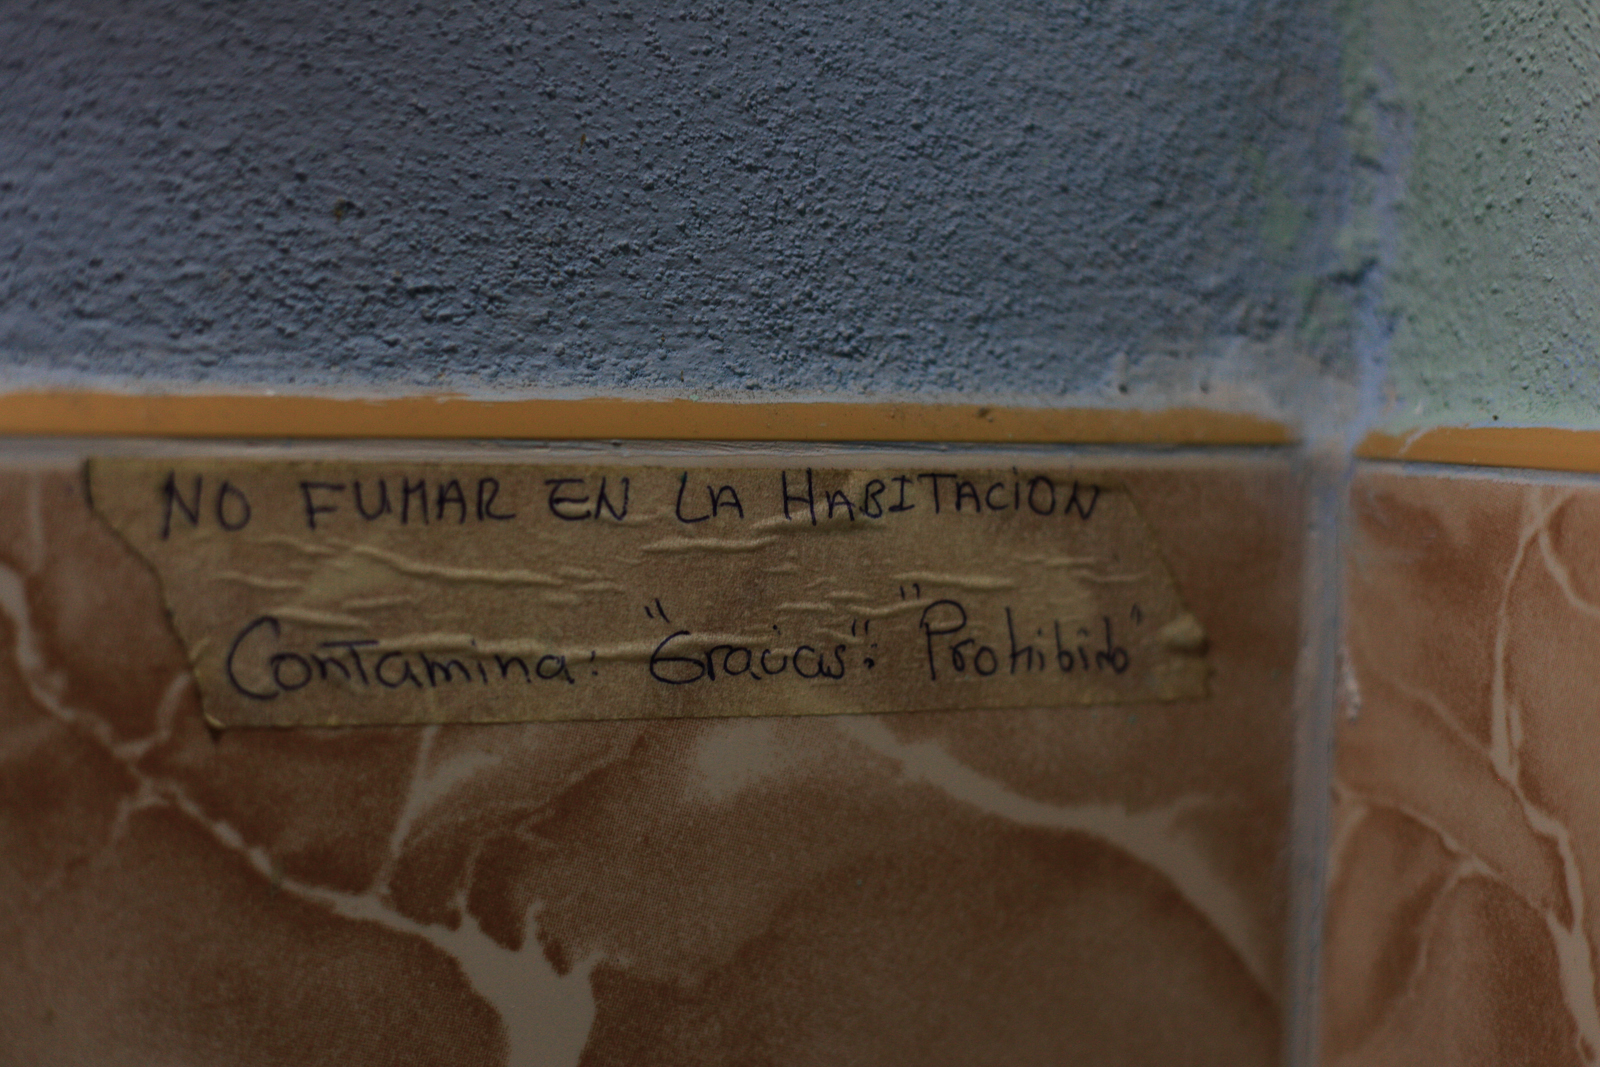 NO FUMAR EN LA HABITACION
Contamina: "Gracias": "Prohibido"